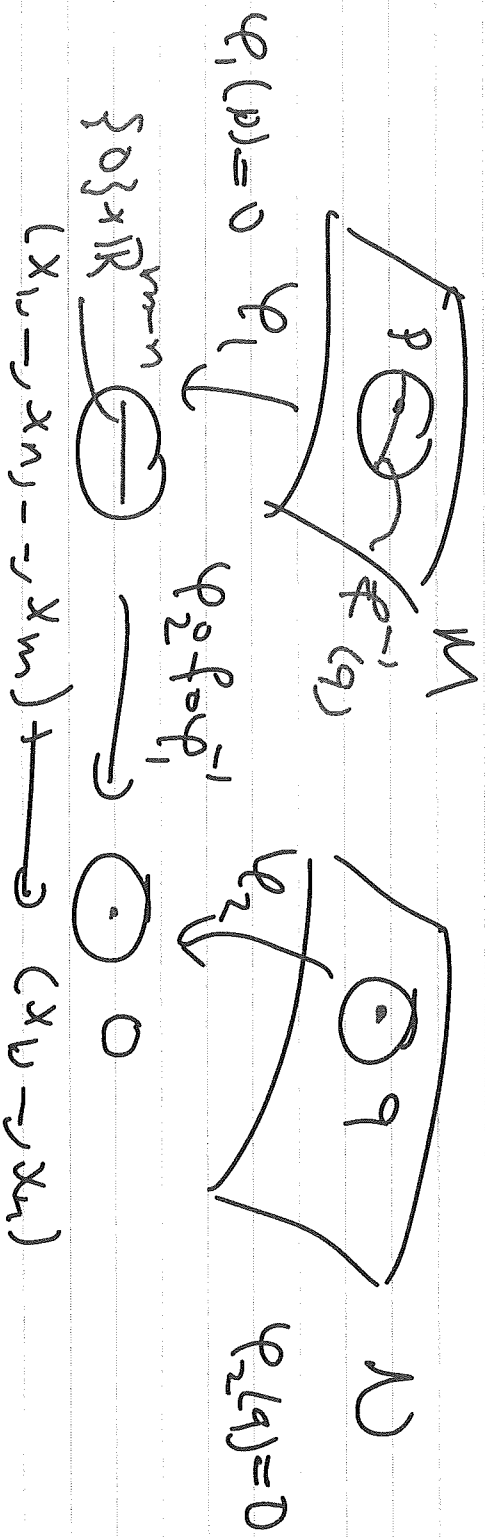 M
p
f⁻¹(q)
N
q
φ₁(p) = 0
φ₁
φ₂
φ₂(q) = 0
{0} × ℝᵐ⁻ⁿ
φ₂ ∘ f ∘ φ₁⁻¹
0
(x₁, –, xₙ, –, xₘ) ↦ (x₁, –, xₙ)